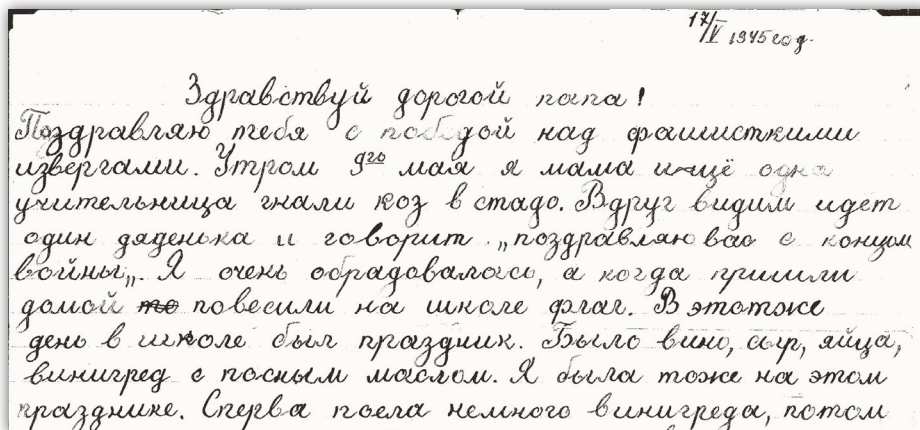 17/V 1945 год.
Здравствуй дорогой папа!
Поздравляю тебя с победой над фашисткими
извергами. Утром 9го мая я мама и ещё одна
учительница гнали коз в стадо. Вдруг видим идет
один дяденька и говорит „поздравляю вас с концом
войны„. Я очень обрадовалась, а когда пришли
домой то повесили на школе флаг. В этотже
день в школе был праздник. Было вино, сыр, яйца,
винигред с посным маслом. Я была тоже на этом
празднике. Сперва поела немного винигреда, потом